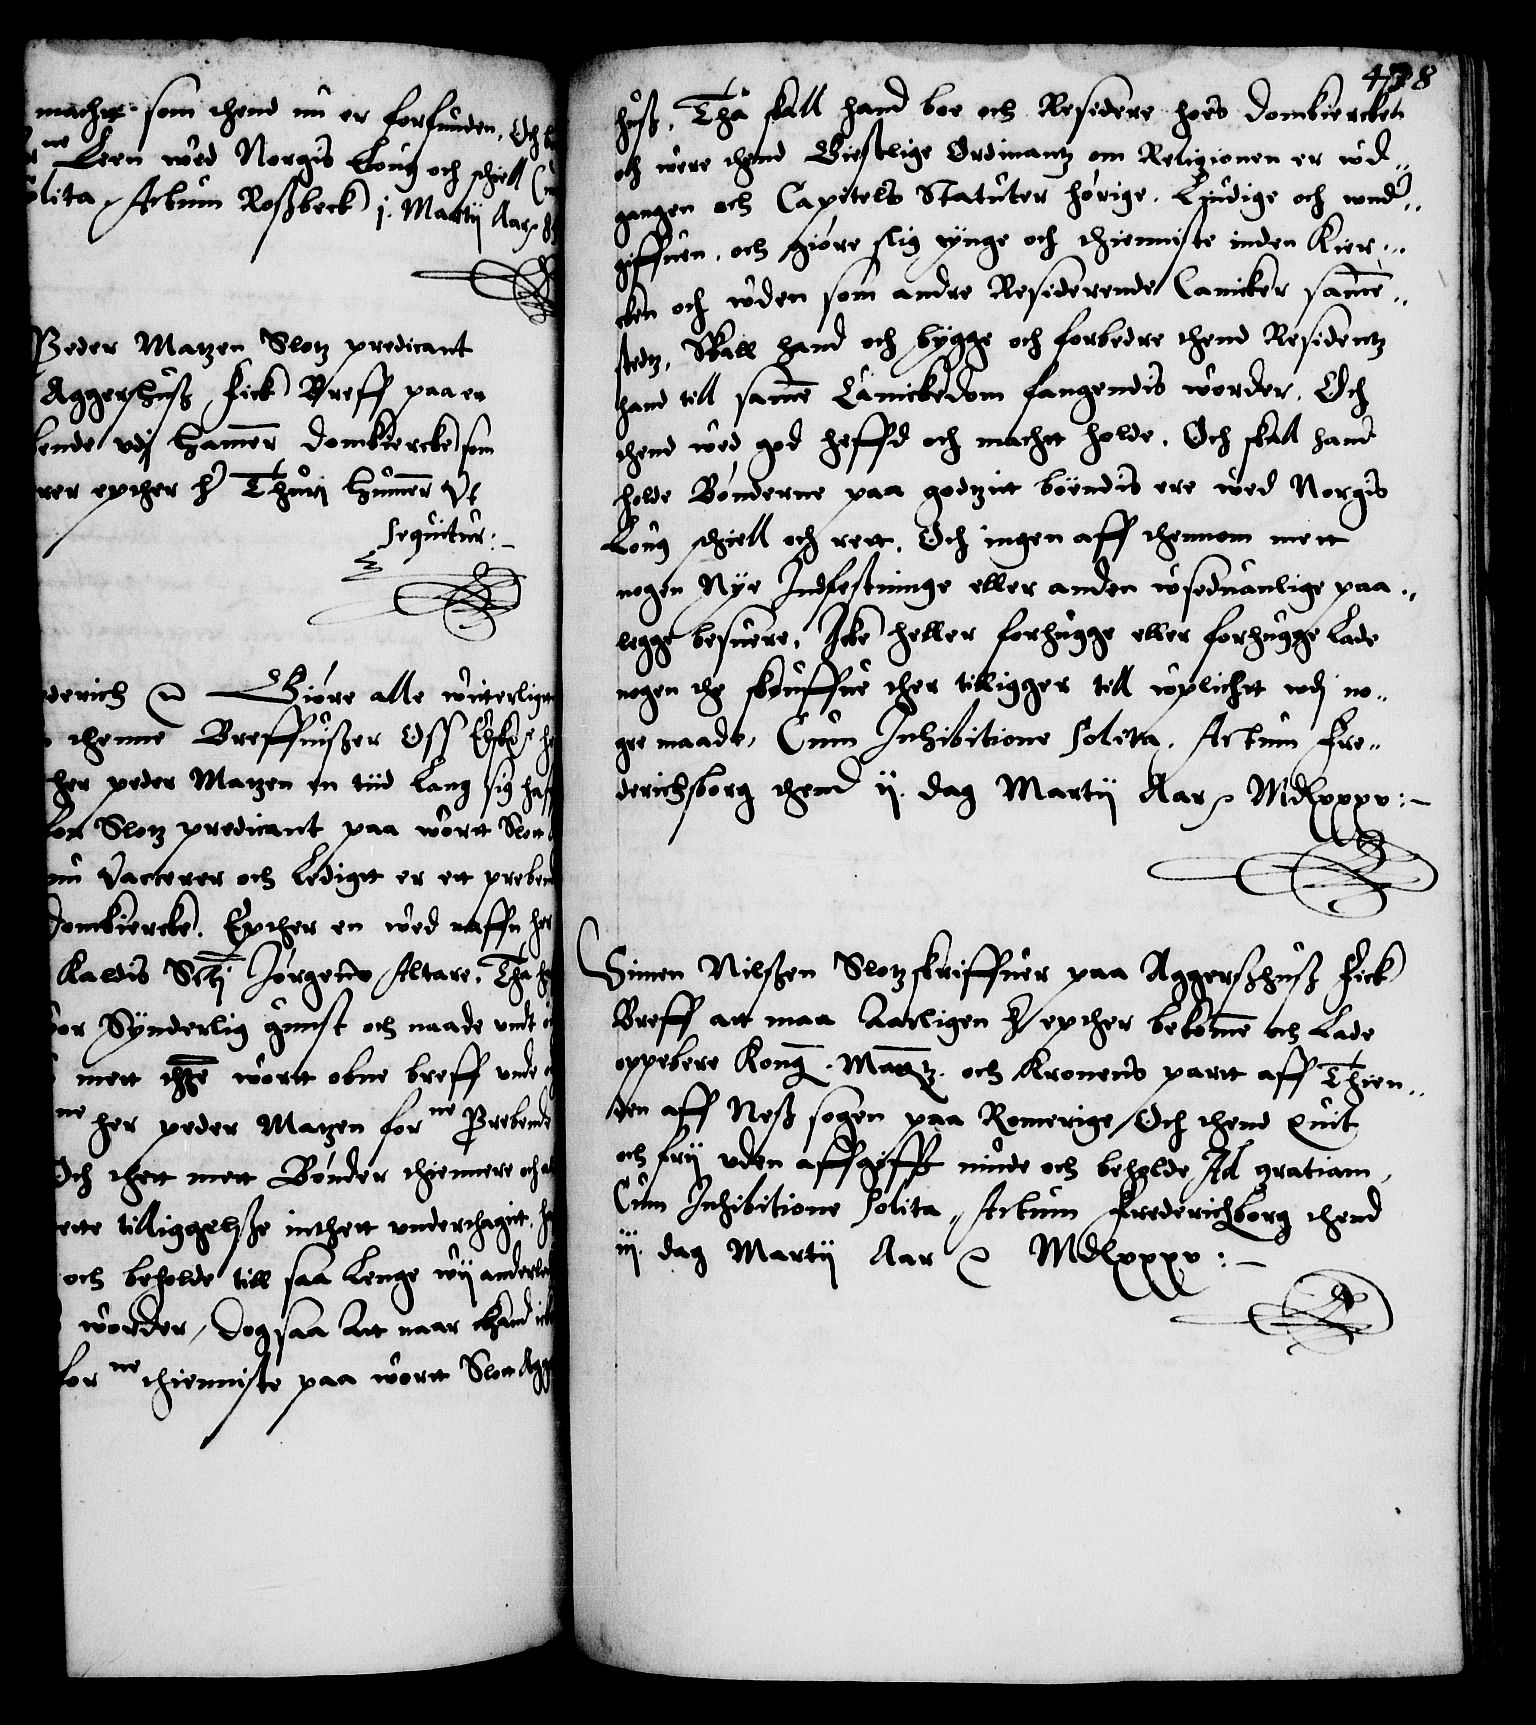 machtt som thend nu er forfunden, Och
ne Leen wed Norgis Loug och schiell
olita, Actum Roßbeck j. Martij Aar
Peder Matzen Slotz predicant
Aggershuß fick Breff paa en
bende vdj Hamer Domkiercke som
rer epther hr Thurj Humer Vt
sequitur:
derich Giøre alle witterligt
thenne Breffuißer Oss
her peder Matzen en tiid lang sig haff
for Slotz predicant paa wortt Slott
nu vacerer och Ledigtt er ett preben
Domkiercke. Epther en wed naffn her
Kaldis Sctj Jørgens Altare. Tha
wor Synderlig gunst och naade vndt
mett thette wortt obne breff vnde
ne her peder Matzen forne Prebende
Och thett mett Bønder thiennere och
rette tilliggelsße inthett vnderthagtt.
och beholde till saa lenge wij anderle
worder, Dog saa Att naar thand icke
forne thienniste paa wortt Slott Agg
478
huß. Tha skall hand boe och Residere hoes Domkiercken
och were thend Giestlige Ordinantz om Religionen er wd
gangen och Capitels Statuter hørige. Liudige och wnd
giffuen, och giøre slig tynge och thienniste inden Kier
cken och wden som andre Residerende Canicker same
stedtz, Skall hand och bygge och forbedre thend Residentz
hand till same Canickedom fangendis worder, Och
thend wed god heffd och machtt holde. Och skall hand
holde Bønderne paa godtzitt boendis ere wed Norgis
Loug schiell och rett. Och ingen aff thennom mett
nogen Nye Indfestninge eller anden wseduanlige paa
legge besuere, Icke heller forhugge eller forhugge Lade
nogen the skouffue ther tilligger till wplichtt wdj no
gre maade, Cum Inhibitione solita. Actum Fre
derichsborg thend ij. dag Martij Aar Mdlxxxv:
Simen Nilßen Slotzskriffuer paa Aggerßhuß fick
Breff att maa Aarligen her epther bekome och Lade
oppebere Kong. Maytz. och Kronens partt aff Thien
den aff Neß sogen paa Romerige, Och thend quit
och frij vden affgifft niude och beholde Ad gratiam,
Cum Inhibitione solita, Actum Frederichborg thend
iij. dag Martij Aar Mdlxxxv: